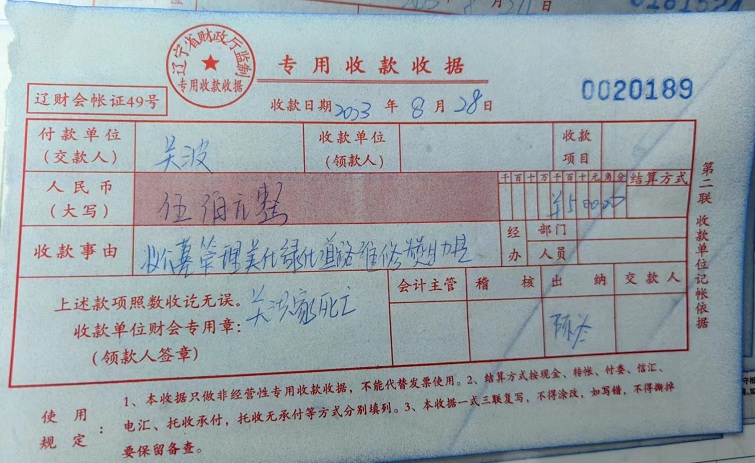 辽宁省财政厅监制
专用收款收据
专用收款收据
0020189
辽财会帐证49号
收款日期 2023 年 8 月 28 日
付款单位
(交款人)
吴波
收款单位
(领款人)
收款
项目
人民币
(大写)
伍佰元整
千百十万千百十元角分
¥50000
结算方式
收款事由
收 管理美化绿化道路维修
经办
部门
人员
上述款项照数收讫无误。
收款单位财会专用章:
(领款人签章)
会计主管
稽 核
出 纳
交款人
使用规定:
1、本收据只做非经营性专用收款收据,不能代替发票使用。2、结算方式按现金、转帐、付委、信汇、
电汇、托收承付,托收无承付等方式分别填列。3、本收据一式三联复写,不得涂改,如写错,不得撕掉
要保留备查。
第二联 收款单位记帐依据